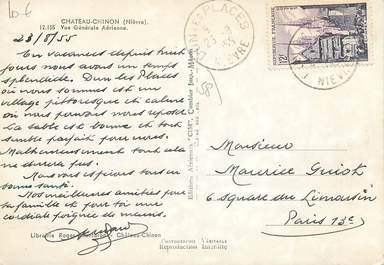 CHATEAU-CHINON (Nièvre).
12.105 Vue Générale Aérienne.
23/8/55
En vacances depuis huit
jours nous avons un temps
splendide. Dun les Places
où nous sommes est un
village pittoresque et calme
où nous pouvons nous reposer
La table est bonne et tout
semble parfait pour nous.
Malheureusement tout cela
ne durera pas.
Nous vous espérons tous en
bonne santé.
Nos meilleures amitiés pour
ta famille et pour toi une
cordiale poignée de mains.
Librairie Château-Chinon
Editions Aériennes "CIM" Combier Imp. Mâcon
Reproduction Interdite
58
PLACES
NIEVRE
REPUBLIQUE FRANÇAISE
12F
NIEVRE
Monsieur
Maurice Guiot
6 square du Limousin
Paris 13e